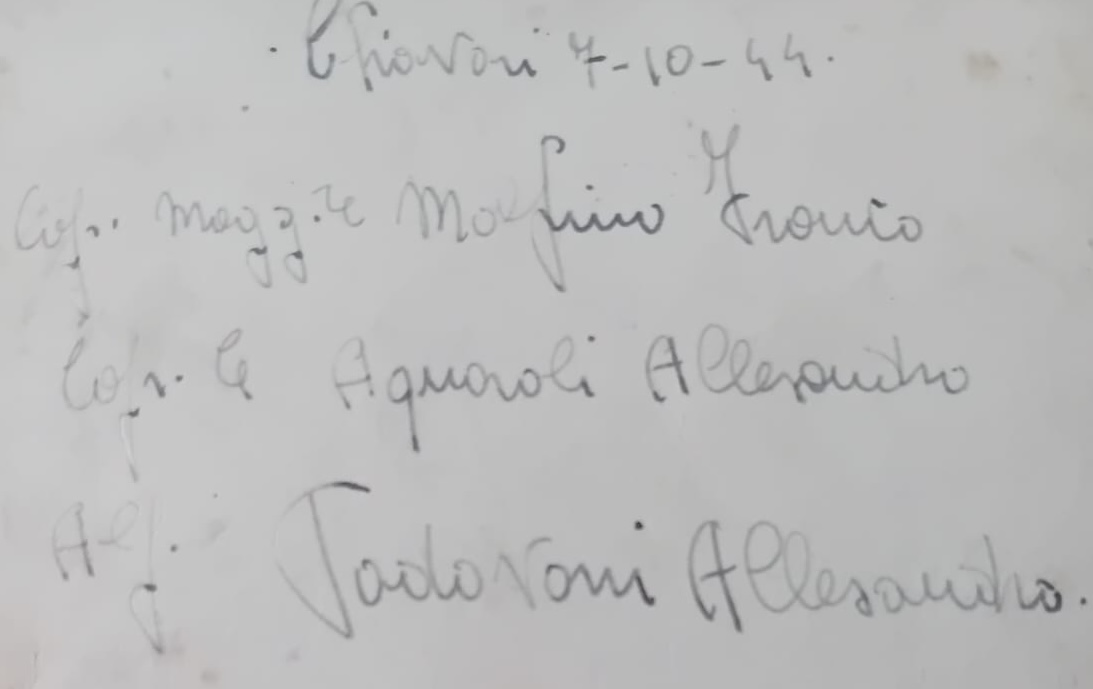 Chiavari 7-10-44.
Cap. Magg.re Morfino Franco
Cap. le Aquaroli Allesandro
Alf. Padovani Allesandro.